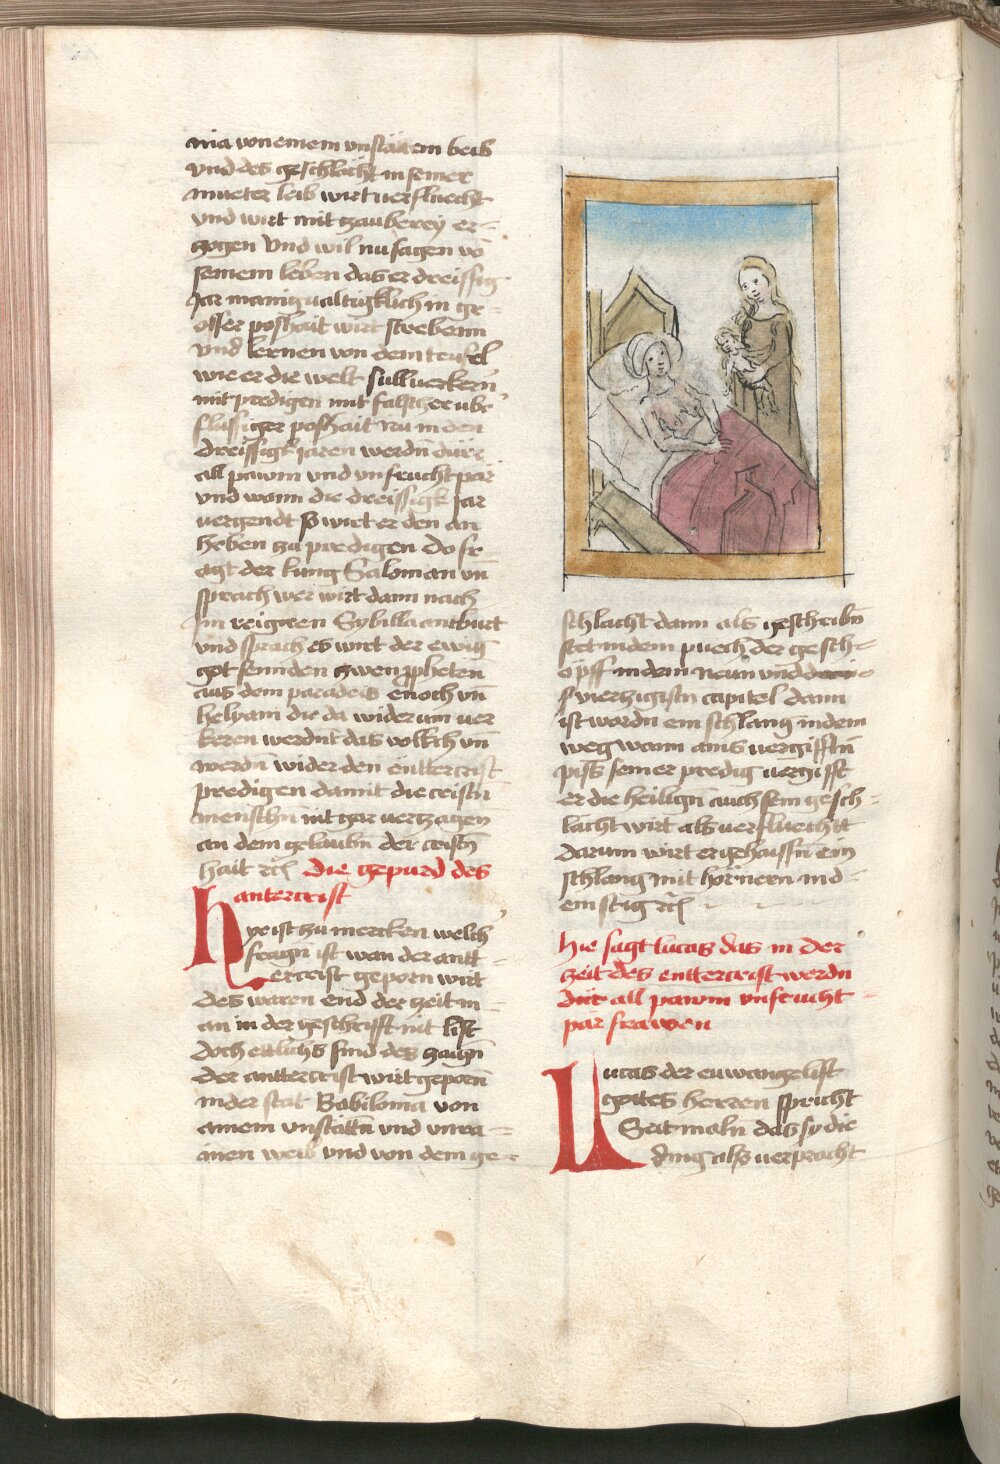 nia von einem vnstäten beib
vnd des geschlächt in seiner
mueter leib wirt uerfluecht
vnd wirt mit zauberey er-
zogen Vnd wil nu sagen vo
seinem leben das er dreissig
Jar manigualtigklich in gr-
osser poshait wirt strebenn
vnd lernen von dem teufel
wie er die welt sull uerkern
mit predigen mit falscher vbr
flüssiger poshait Nu in den
dreissigk Jaren werdn dürr
all pawm vnd vnfruchtpar
vnd wann die dreissigk Jar
uergendt so wirt er den an
heben zu predigen Do fr-
agt der kung Saloman vn
sprach wer wirt dann nach
Jm reigiren Sybilla antburt
vnd sprach es wirt der ewig
got sennden zwen ppheten
aus dem paradeis enoch vn
helyam die da widerum uer
keren werdnt das volkch vn
werdn wider den enttercrist
predigen damit die cristn
menschn nit gar uerzagen
an dem gelaubn der cristn
hait etc Die gepurd des
antercrist
Hye ist zu mercken welch
fragn ist wan der antt-
ercrist geporn wirt
des waren end der zeit m-
an in der geschrifft nit list
doch etlichs sind des zaign
der anttercrist wirt geporn
in der stat Babilonia von
ainem vnstättn vnd vnra-
inen weib vnd von dem ge-
schlacht dann als geschribn
stet in dem puech der gesch-
öpff in dem Neun vnd
vierzigistn capitel dann
ist wordn ein schlang in dem
weg wann ains uergifftn
piss seiner predig uergifft
er die heilign auch sein gesch-
lächt wirt als uerfluechtt
darum wirt er gehaissn ein
schlang mit hörnern ind-
em stig etc
Hie sagt lucas das in der
zeit des enttercrist werdn
dür all pawm vnfrucht-
pär frawen
Lucas der euwangelist
gottes herren spricht
Seitmaln das sy die
ding also uerpracht